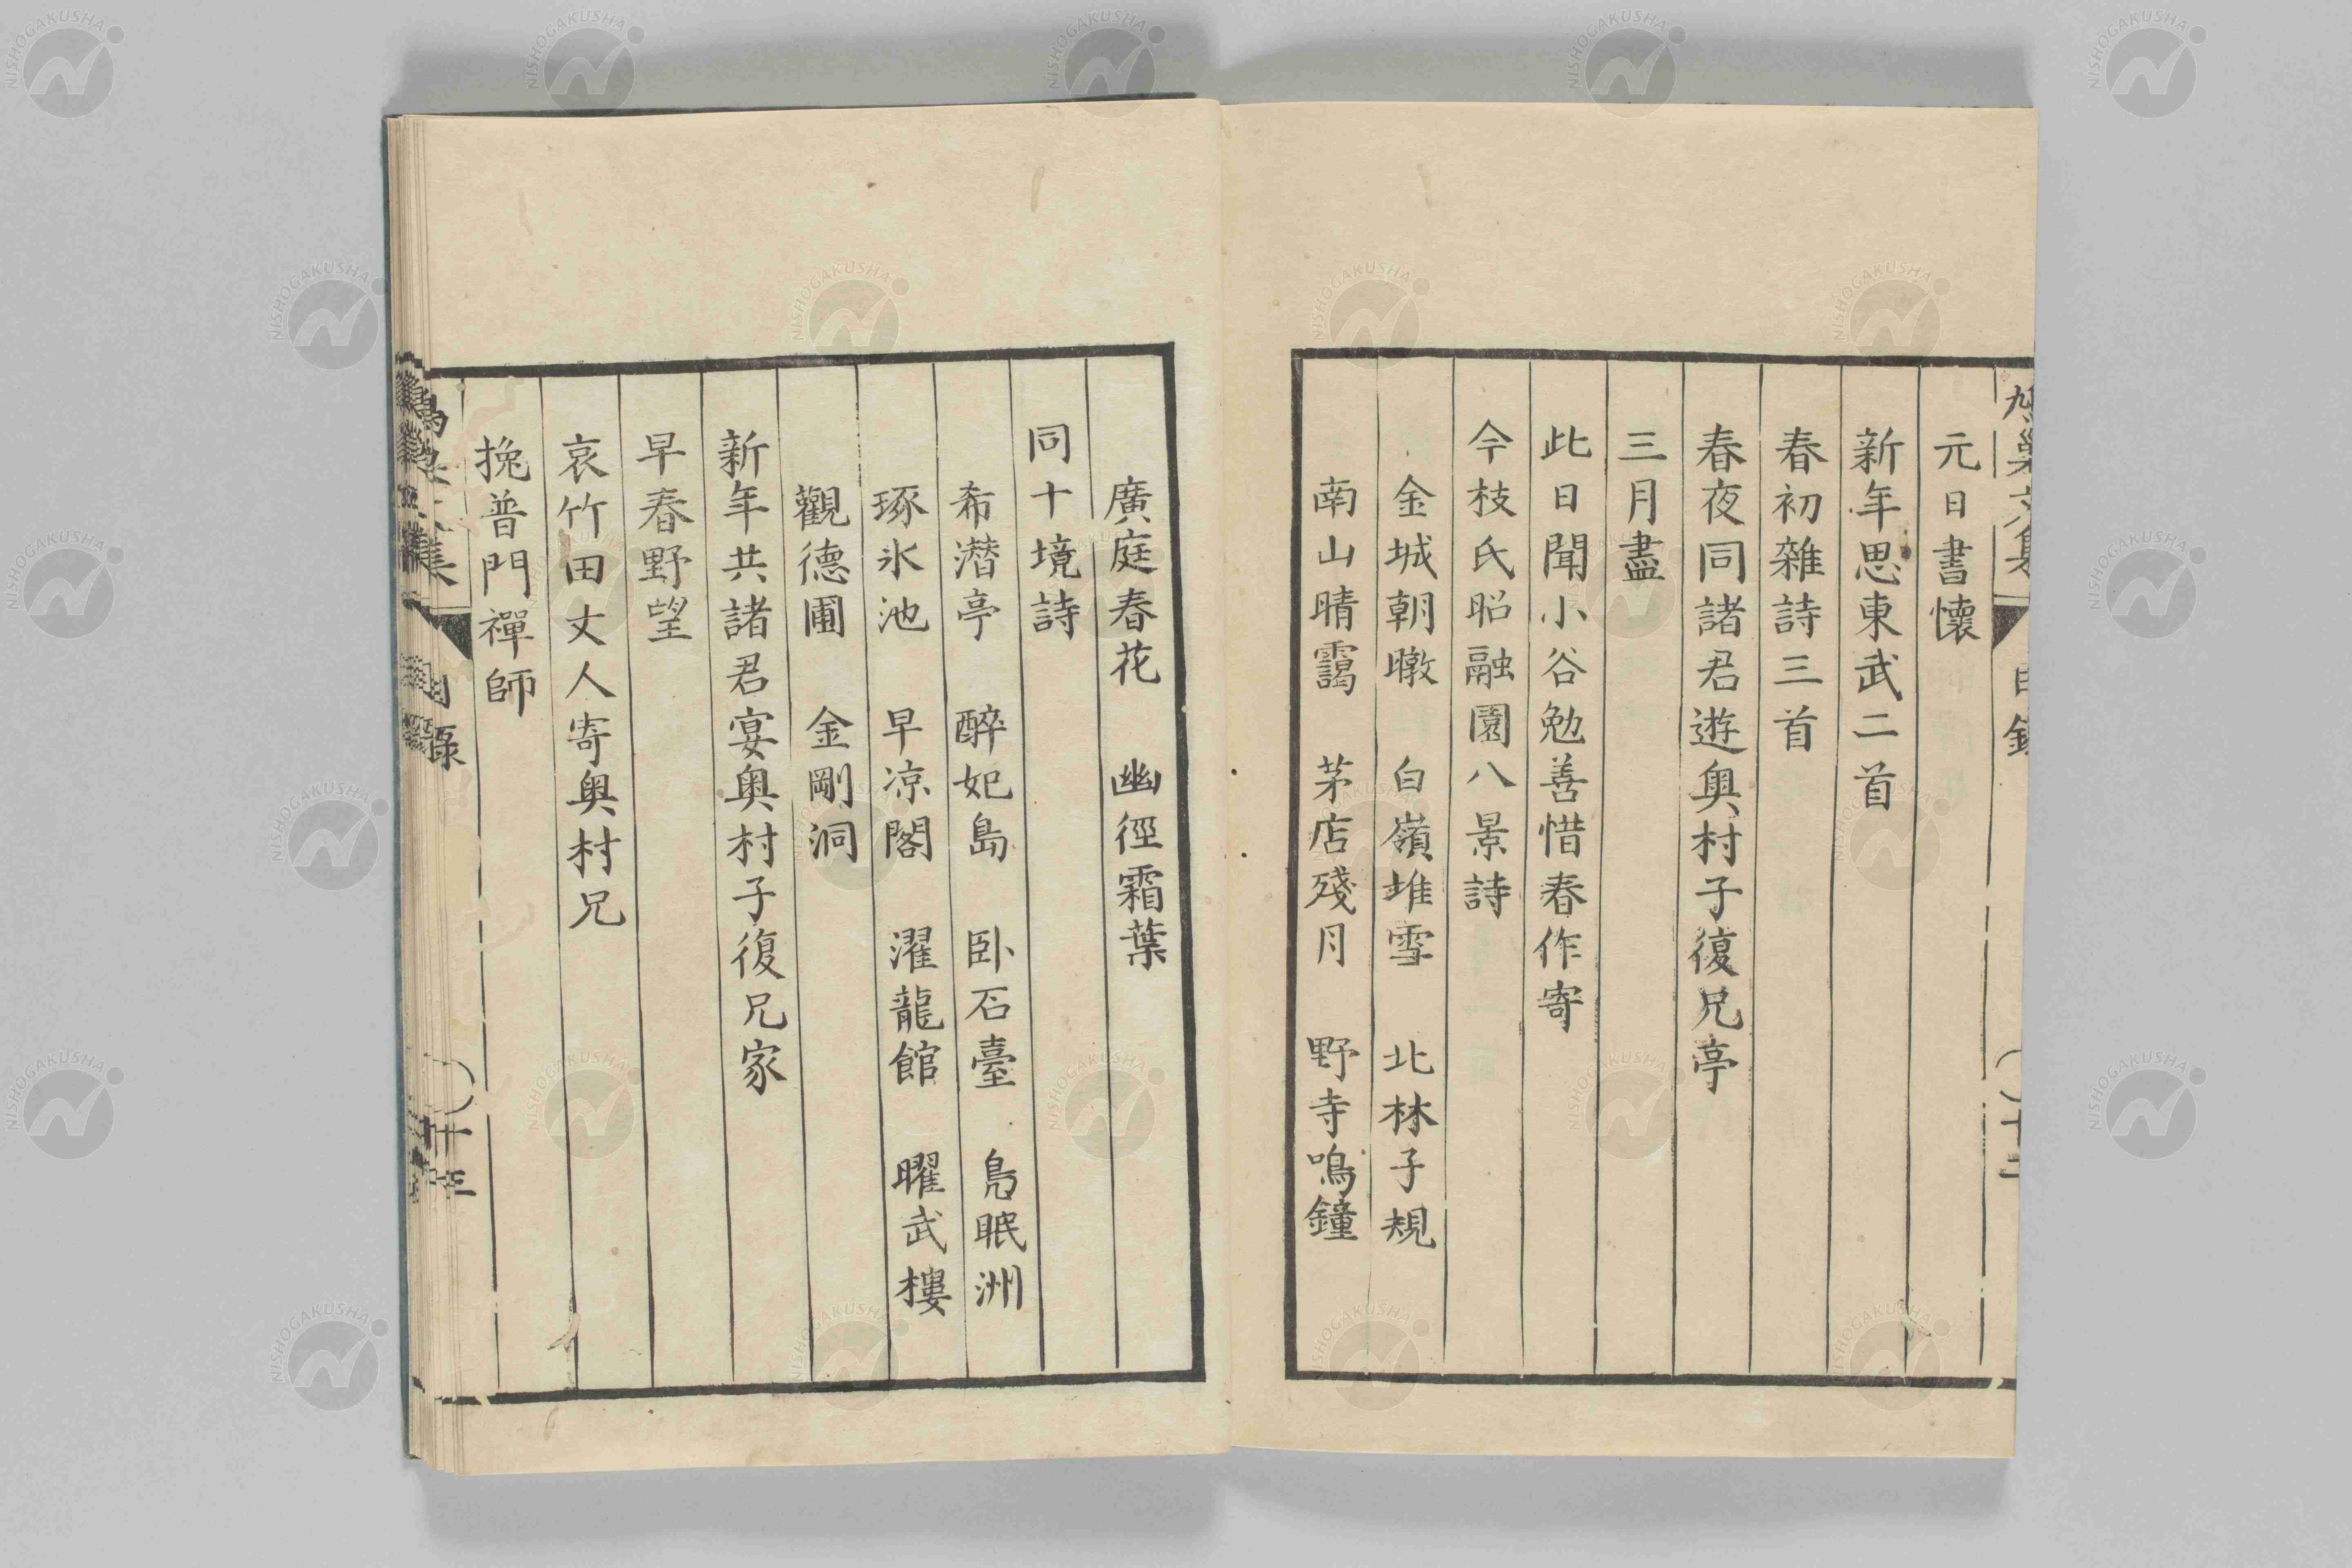 鳩巢文集 目錄 十二
元日書懷
新年思東武二首
春初雜詩三首
春夜同諸君遊奧村子復兄亭
三月盡
此日聞小谷勉善惜春作寄
今枝氏昭融園八景詩
金城朝暾 白嶺堆雪 北林子規
南山晴靄 茅店殘月 野寺鳴鐘
廣庭春花 幽徑霜葉
同十境詩
希潛亭 醉妃島 臥石臺 鳧眠洲
琢氷池 早凉閣 濯龍館 曜武樓
觀德圃 金剛洞
新年共諸君宴奧村子復兄家
早春野望
哀竹田丈人寄奧村兄
挽普門禪師
鳩巢文集 目錄 十三
NISHOGAKUSHA